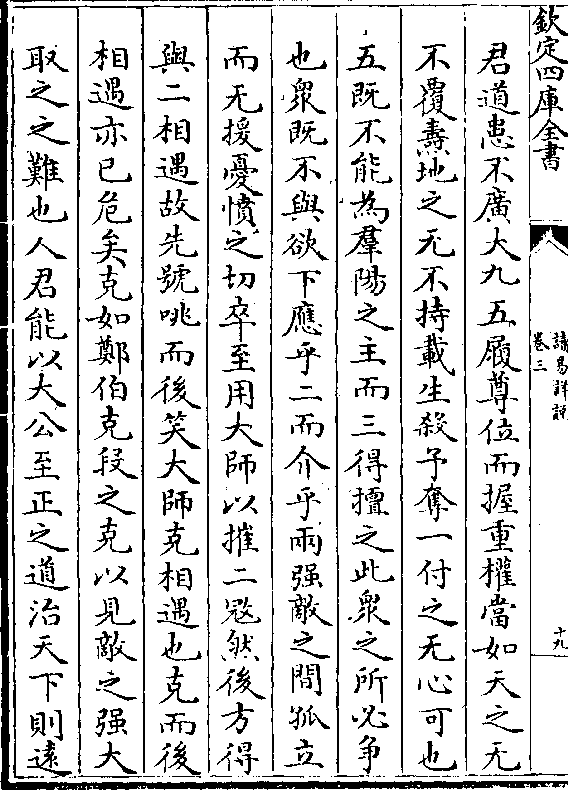 欽定四庫全書
讀易詳說
卷三
十九
君道患不廣大九五履尊位而握重權當如天之无
不覆燾地之无不持載生殺予奪一付之无心可也
五既不能為羣陽之主而三得擅之此衆之所必争
也衆既不與欲下應乎二而介乎兩强敵之間孤立
而无援憂憤之切卒至用大師以摧二冦然後方得
與二相遇故先號咷而後笑大師克相遇也克而後
相遇亦已危矣克如鄭伯克段之克以見敵之强大
取之之難也人君能以大公至正之道治天下則遠